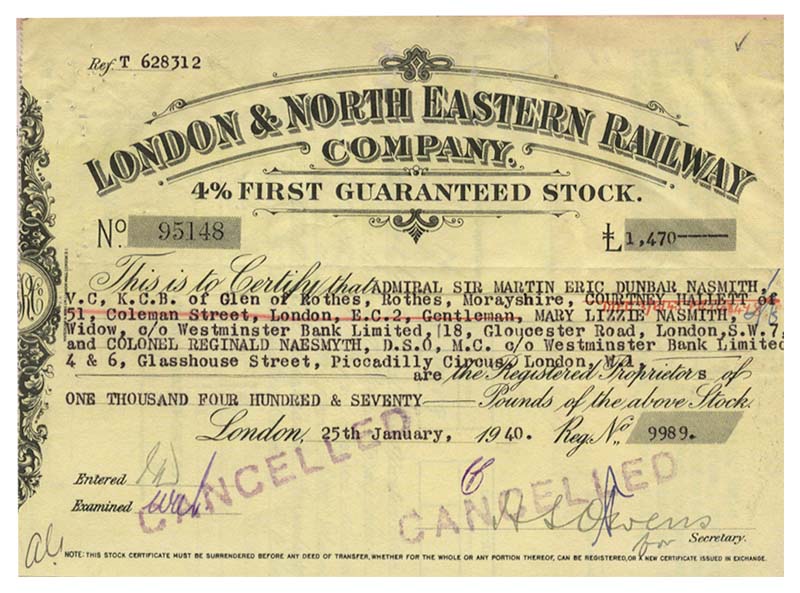 Ref. T 628312
LONDON & NORTH EASTERN RAILWAY
COMPANY.
4% FIRST GUARANTEED STOCK.
No. 95148
£ 1,470
This is to Certify that ADMIRAL SIR MARTIN ERIC DUNBAR NASMITH,
V.C, K.C.B. of Glen of Rothes, Rothes, Morayshire, COURTNEY HALLETT of
51, Coleman Street, London, E.C.2, Gentleman, MARY LIZZIE NASMITH,
Widow, c/o Westminster Bank Limited, 18, Gloucester Road, London, S.W.7,
and COLONEL REGINALD NAESMYTH, D.S.O, M.C. c/o Westminster Bank Limited
4 & 6, Glasshouse Street, Piccadilly Circus, London, W.1,
are the Registered Proprietors of
ONE THOUSAND FOUR HUNDRED & SEVENTY Pounds of the above Stock.
London, 25th January, 1940. Reg. No. 9989.
CANCELLED
CANCELLED
Entered
Examined
A S Owens
for Secretary.
NOTE: THIS STOCK CERTIFICATE MUST BE SURRENDERED BEFORE ANY DEED OF TRANSFER, WHETHER FOR THE WHOLE OR ANY PORTION THEREOF, CAN BE REGISTERED, OR A NEW CERTIFICATE ISSUED IN EXCHANGE.